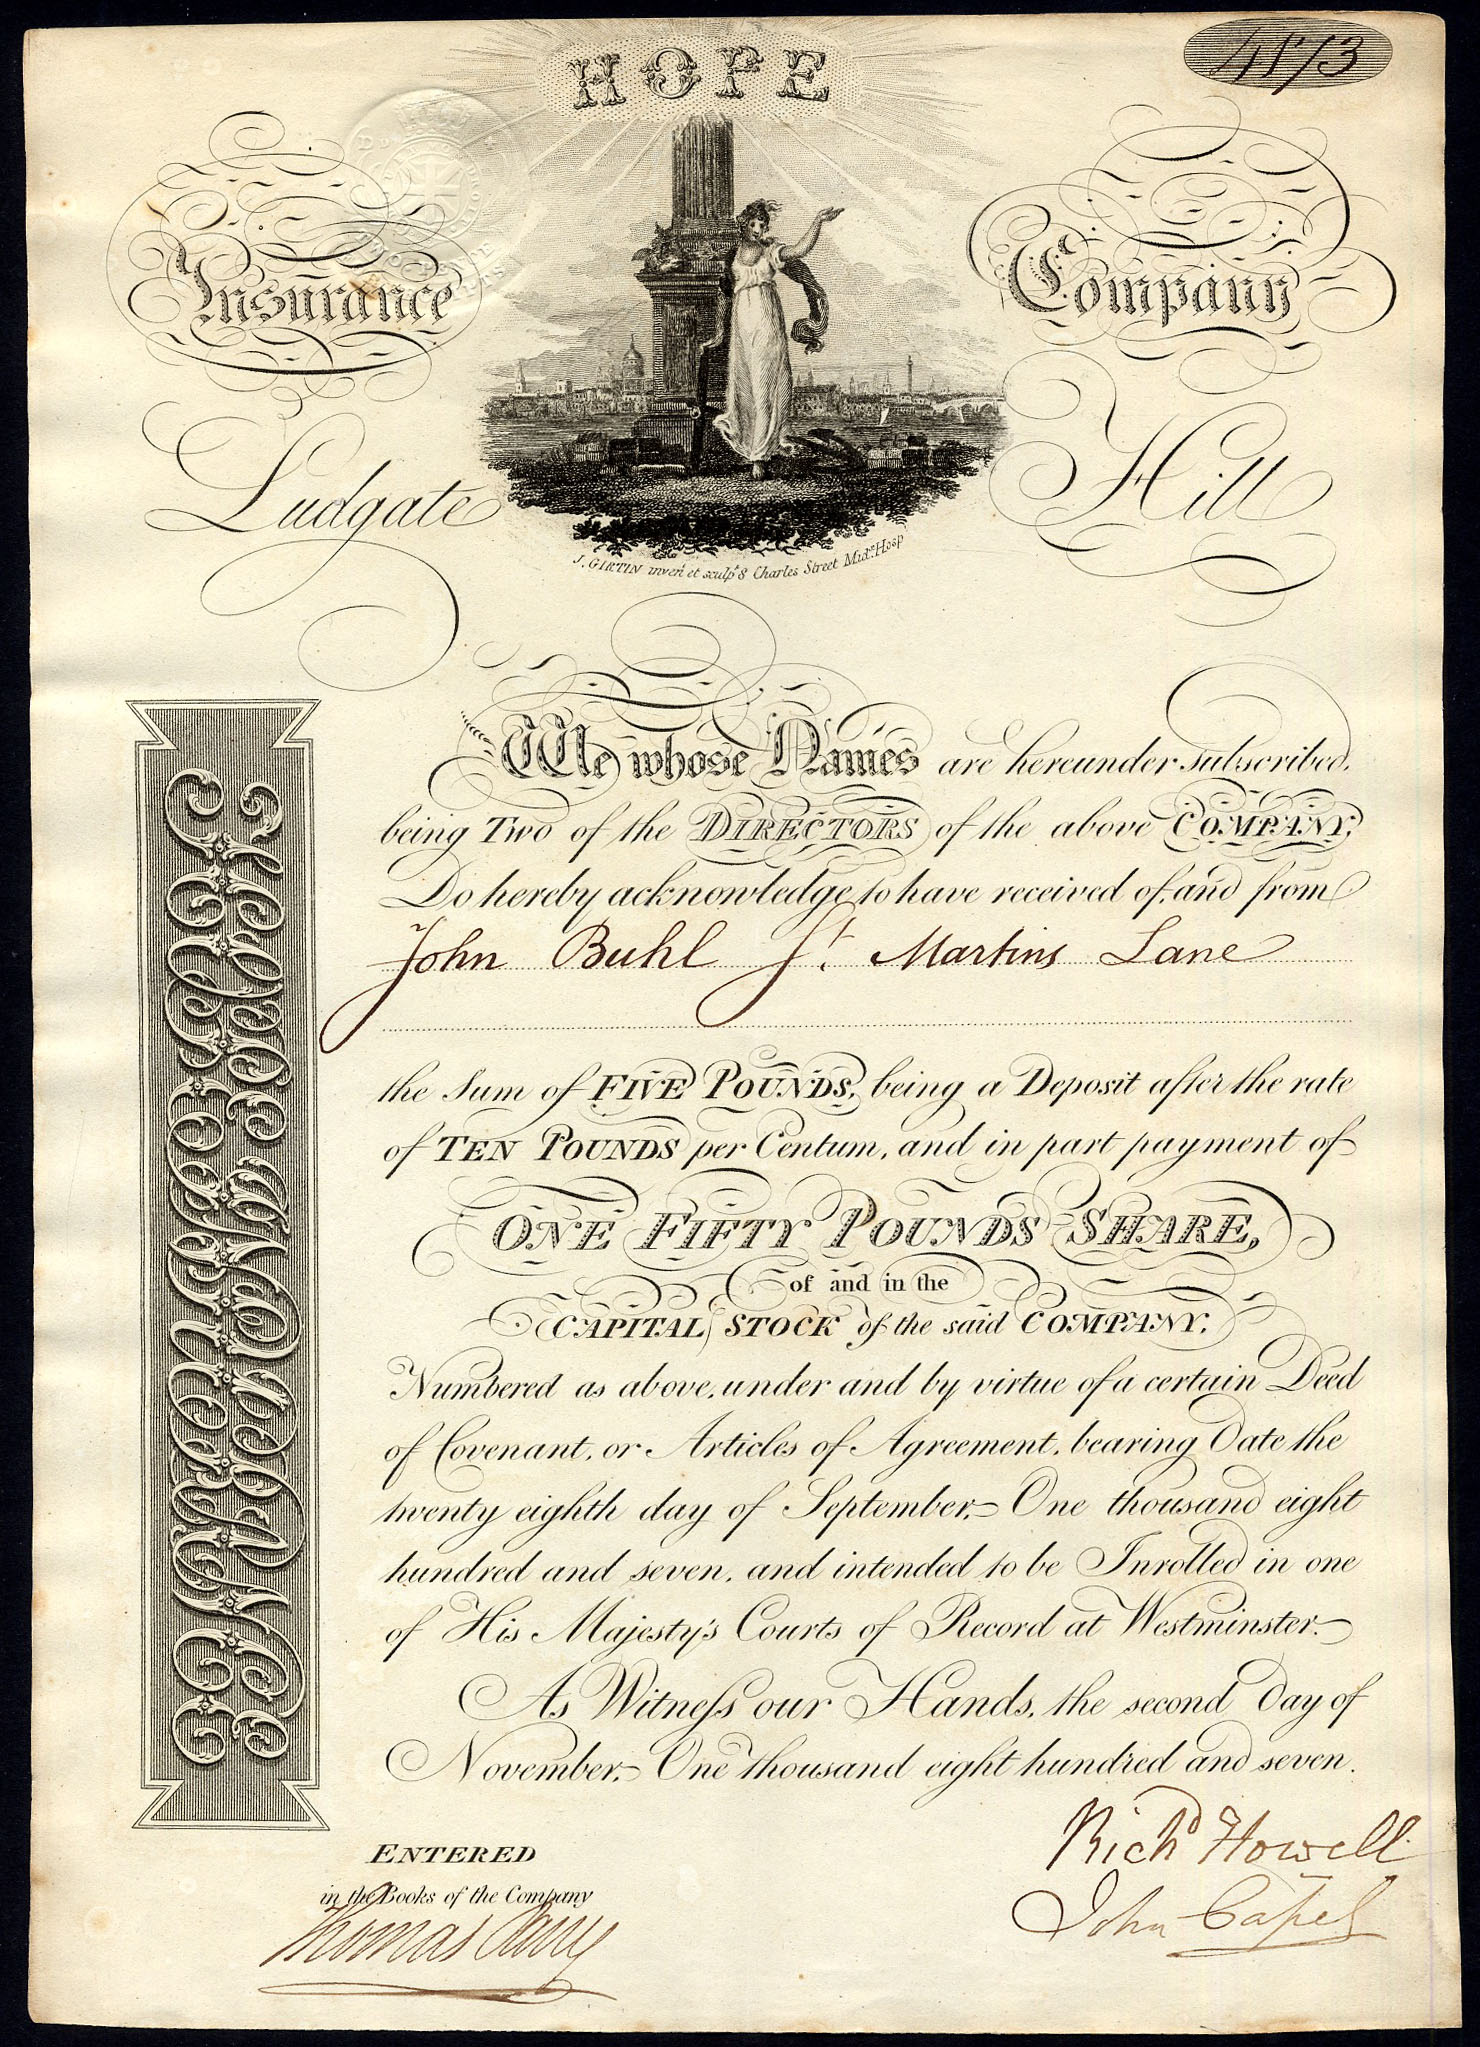 HOPE
Insurance Company
Ludgate Hill
J. GIRTIN inven.t et sculp.t 8 Charles Street Mid.x Hosp
We whose Names are hereunder subscribed,
being Two of the DIRECTORS of the above COMPANY,
Do hereby acknowledge to have received of, and from
John Buhl St. Martins Lane
the Sum of FIVE POUNDS, being a Deposit after the rate
of TEN POUNDS per Centum, and in part payment of
ONE FIFTY POUNDS SHARE,
of and in the
CAPITAL STOCK of the said COMPANY.
Numbered as above, under and by virtue of a certain Deed
of Covenant, or Articles of Agreement, bearing Date the
twenty eighth day of September,— One thousand eight
hundred and seven, and intended to be Inrolled in one
of His Majesty's Courts of Record at Westminster.—
As Witneſs our Hands, the second Day of
November,— One thousand eight hundred and seven.
Rich.d Howell
John Capel
ENTERED
in the Books of the Company
Thomas Parry